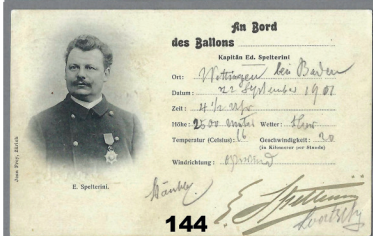 An Bord
des Ballons
Kapitän Ed. Spelterini
Ort: Wettingen bei Baden
Datum: 22 September 1901
Zeit: 4½ Uhr
Höhe: 2500 meter Wetter:
Temperatur (Celsius): 16 Geschwindigkeit: 20
(in Kilometer per Stunde)
Windrichtung:
E. Spelterini.
E. Spelterini
144